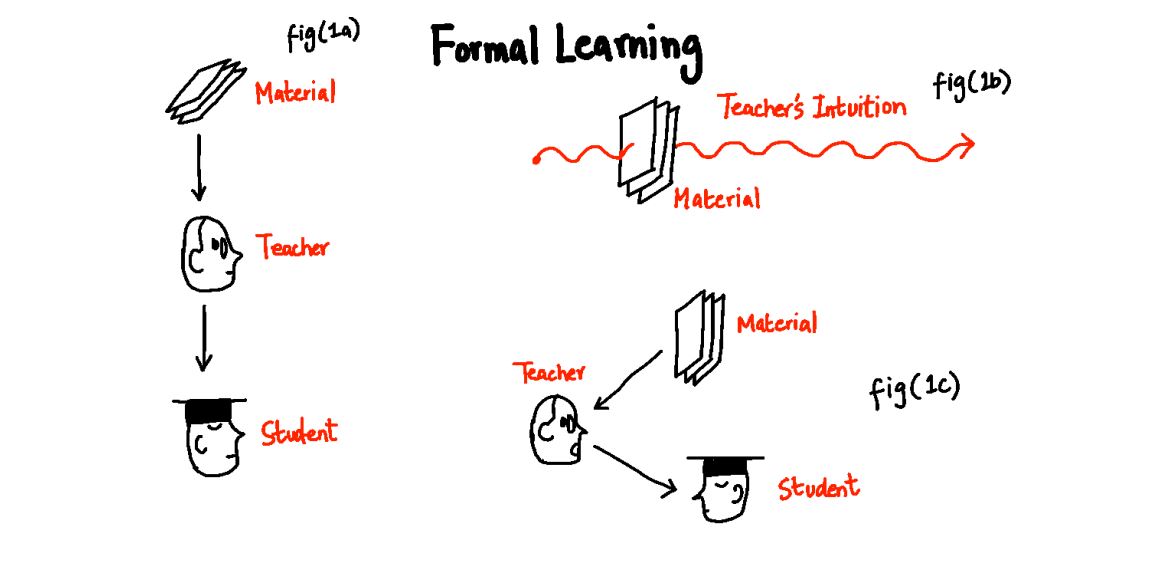 Formal Learning
fig(1a)
Material
Teacher
Student
fig(1b)
Teacher's Intuition
Material
Material
Teacher
fig(1c)
Student